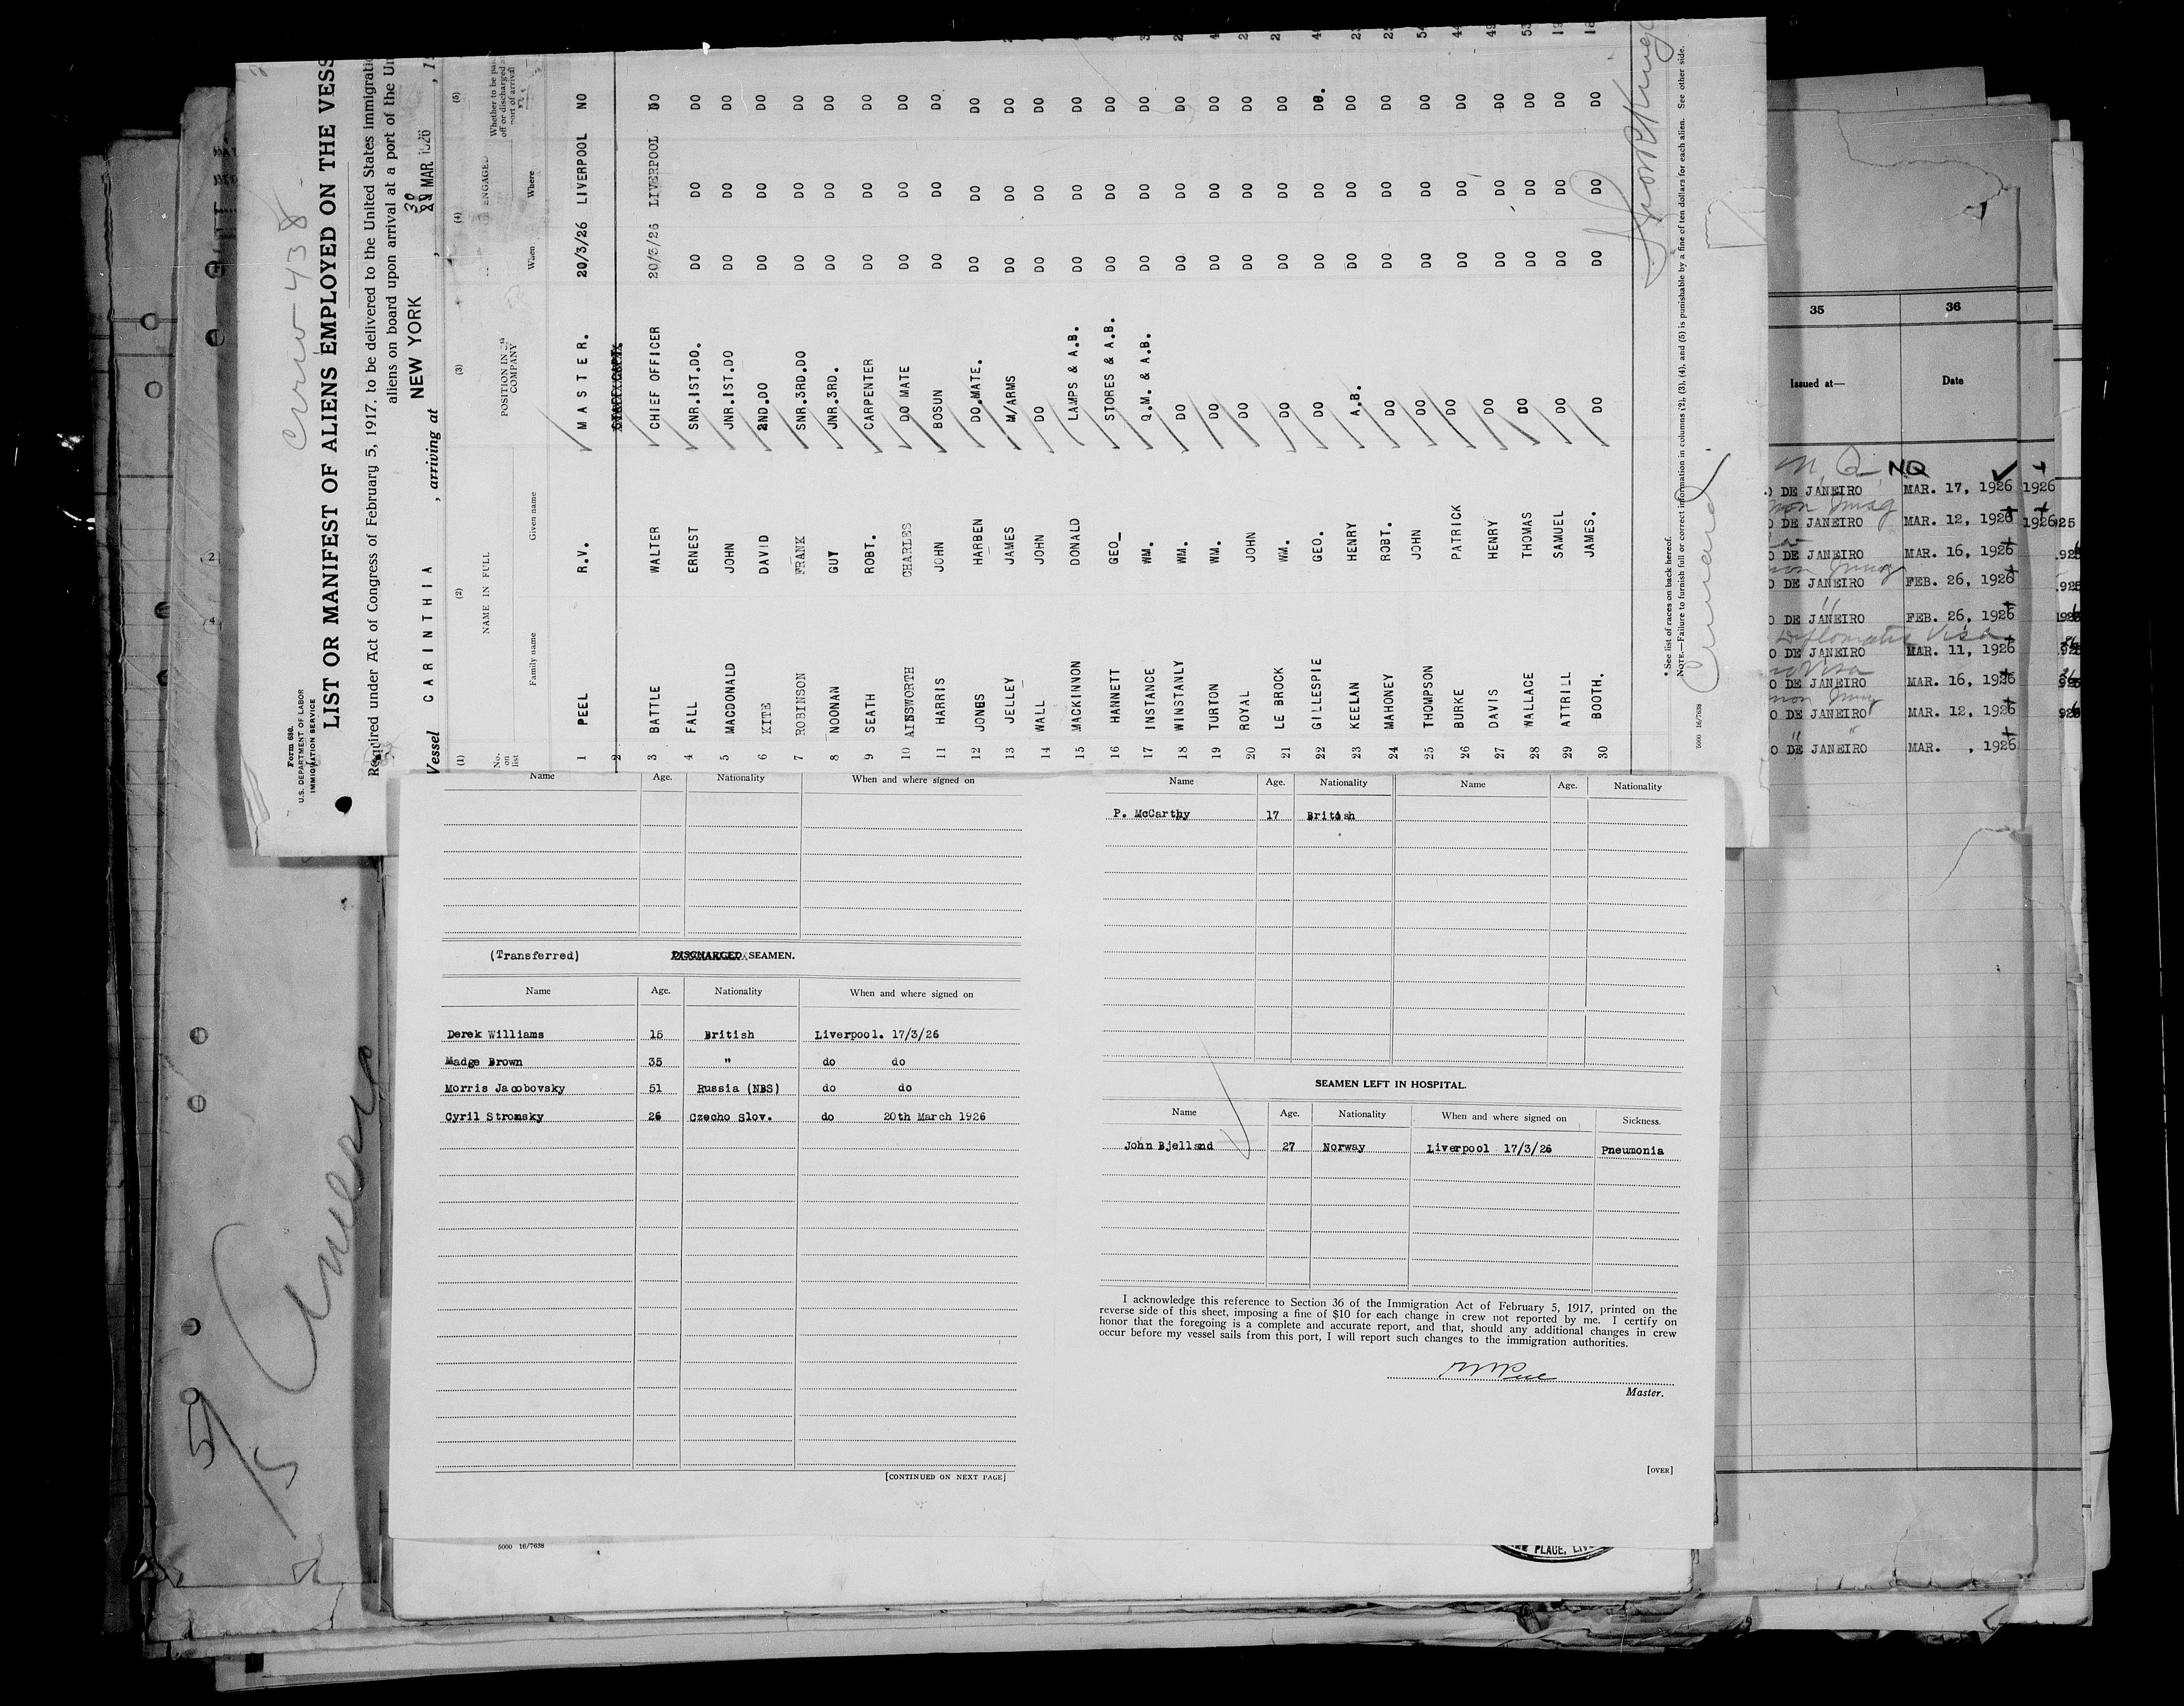 Crew - 438
Form 680.
U.S. DEPARTMENT OF LABOR
IMMIGRATION SERVICE
LIST OR MANIFEST OF ALIENS EMPLOYED ON THE VESS
Required under Act of Congress of February 5, 1917, to be delivered to the United States immigratio
aliens on board upon arrival at a port of the Un
Vessel CARINTHIA , arriving at NEW YORK , 30 MAR 1926 , 19
(1) (2) (3) (4) (5)
No. on list NAME IN FULL POSITION IN COMPANY ENGAGED Whether to be paid off or discharged at port of arrival
Family name Given name When Where
1 PEEL R.V. MASTER. 20/3/26 LIVERPOOL NO
2 STAFF CAPT.
3 BATTLE WALTER CHIEF OFFICER 20/3/26 LIVERPOOL DO
4 FALL ERNEST SNR.1ST.DO. DO DO DO
5 MACDONALD JOHN JNR.1ST.DO DO DO DO
6 KITE DAVID 2ND.DO DO DO DO
7 ROBINSON FRANK SNR.3RD.DO DO DO DO
8 NOONAN GUY JNR.3RD. DO DO DO
9 SEATH ROBT. CARPENTER DO DO DO
10 AINSWORTH CHARLES DO MATE DO DO DO
11 HARRIS JOHN BOSUN DO DO DO
12 JONES HARBEN DO.MATE. DO DO DO
13 JELLEY JAMES M/ARMS DO DO DO
14 WALL JOHN DO DO DO DO
15 MACKINNON DONALD LAMPS & A.B. DO DO DO
16 HANNETT GEO_ STORES & A.B. DO DO DO
17 INSTANCE WM. Q.M. & A.B. DO DO DO
18 WINSTANLY WM. DO DO DO DO
19 TURTON WM. DO DO DO DO
20 ROYAL JOHN DO DO DO DO
21 LE BROCK WM. DO DO DO DO
22 GILLESPIE GEO. DO DO DO DO.
23 KEELAN HENRY A.B. DO DO DO
24 MAHONEY ROBT. DO DO DO DO
25 THOMPSON JOHN DO DO DO DO
26 BURKE PATRICK DO DO DO DO
27 DAVIS HENRY DO DO DO DO
28 WALLACE THOMAS DO DO DO DO
29 ATTRILL SAMUEL DO DO DO DO
30 BOOTH. JAMES. DO DO DO DO
* See list of races on back hereof.
NOTE.—Failure to furnish full or correct information in columns (2), (3), (4), and (5) is punishable by a fine of ten dollars for each alien. See other side.
5000 16/7638
Cunard
35 36
Issued at— Date
NQ
DE JANEIRO MAR. 17, 1926 1926
DE JANEIRO MAR. 12, 1926
O DE JANEIRO MAR. 16, 1926
O DE JANEIRO FEB. 26, 1926
O DE JANEIRO FEB. 26, 1926
Diplomatic Visa
O DE JANEIRO MAR. 11, 1926
no Visa
O DE JANEIRO MAR. 16, 1926
O DE JANEIRO MAR. 12, 1926
O DE JANEIRO MAR. , 1926
Name Age. Nationality When and where signed on
(Transferred) DISCHARGED SEAMEN.
Name Age. Nationality When and where signed on
Derek Williams 15 British Liverpool. 17/3/26
Madge Brown 35 " do do
Morris Jacobovsky 51 Russia (NBS) do do
Cyril Stromsky 26 Czecho Slov. do 20th March 1926
[CONTINUED ON NEXT PAGE]
Name Age. Nationality Name Age. Nationality
P. McCarthy 17 British
SEAMEN LEFT IN HOSPITAL.
Name Age. Nationality When and where signed on Sickness.
John Bjelland 27 Norway Liverpool 17/3/26 Pneumonia
I acknowledge this reference to Section 36 of the Immigration Act of February 5, 1917, printed on the
reverse side of this sheet, imposing a fine of $10 for each change in crew not reported by me. I certify on
honor that the foregoing is a complete and accurate report, and that, should any additional changes in crew
occur before my vessel sails from this port, I will report such changes to the immigration authorities.
Master.
[OVER]
5000 16/7638
PLACE, LIV